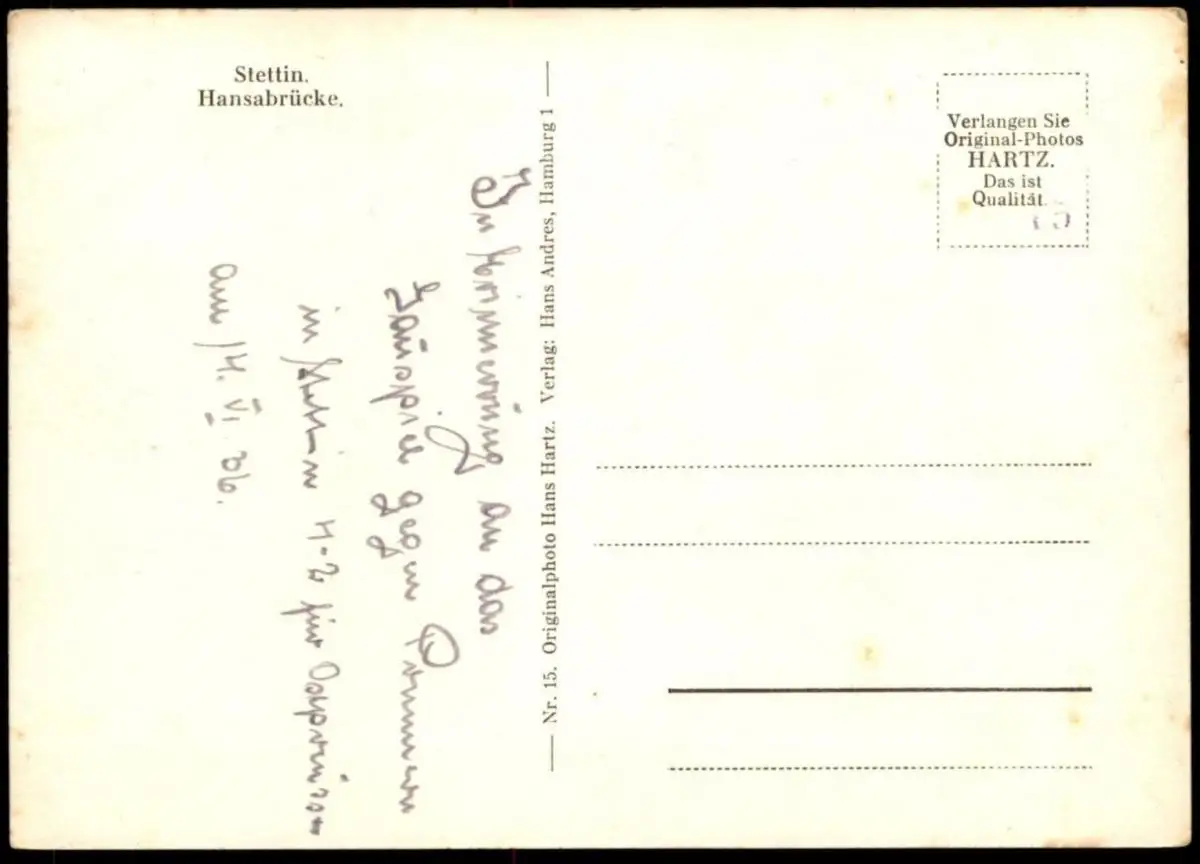 Stettin.
Hansabrücke.
Verlangen Sie
Original-Photos
HARTZ.
Das ist
Qualität.
Nr. 15. Originalphoto Hans Hartz. Verlag: Hans Andres, Hamburg 1
In Erinnerung an das
Gauspiel gegen Pommern
in Stettin 4-2 für Ostpreussen
am 14. VI. 36.